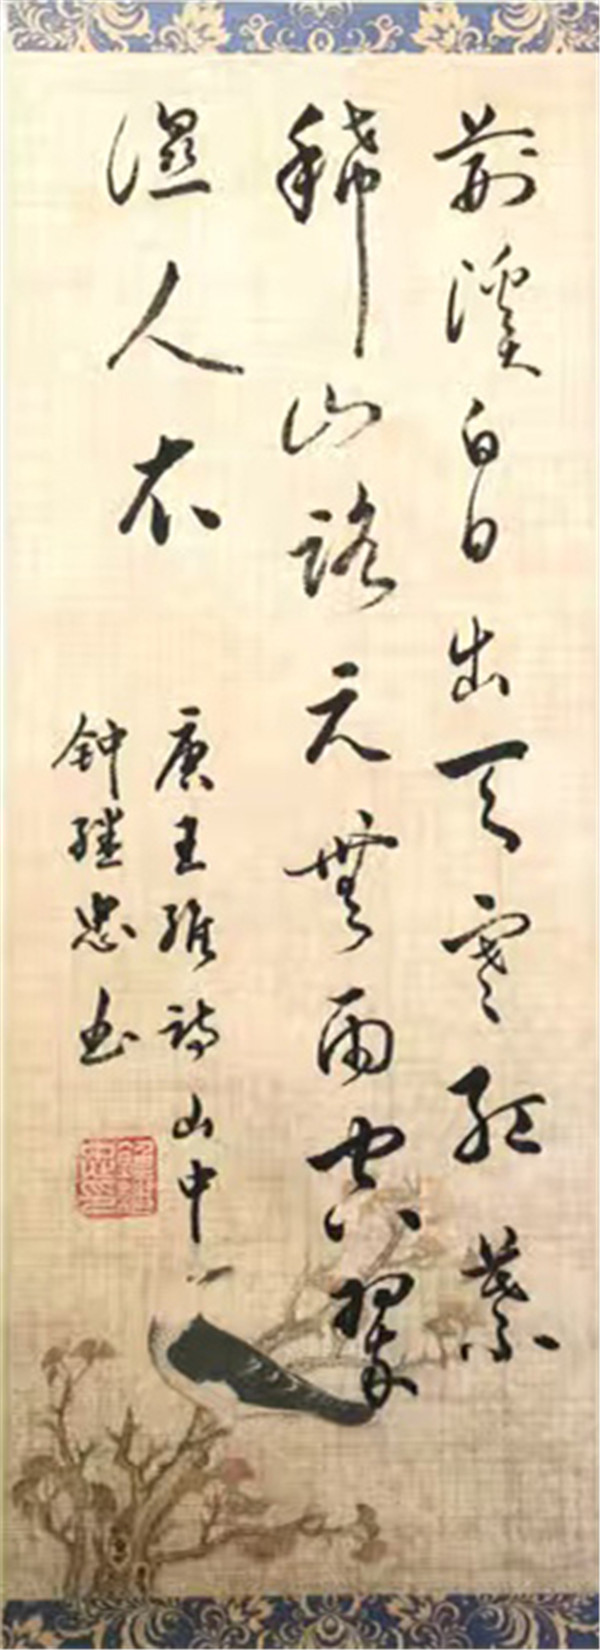 荆溪白日出天寒红葉
稀山路元無雨空翠
湿人衣
唐王维诗山中
钟继忠书